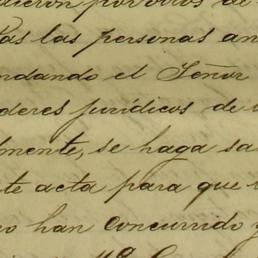 dieron por otros de
las las personas an
ndando el Señor
deres jurídicos de
lmente, se haga sa
te acta para que
no han concurrido y